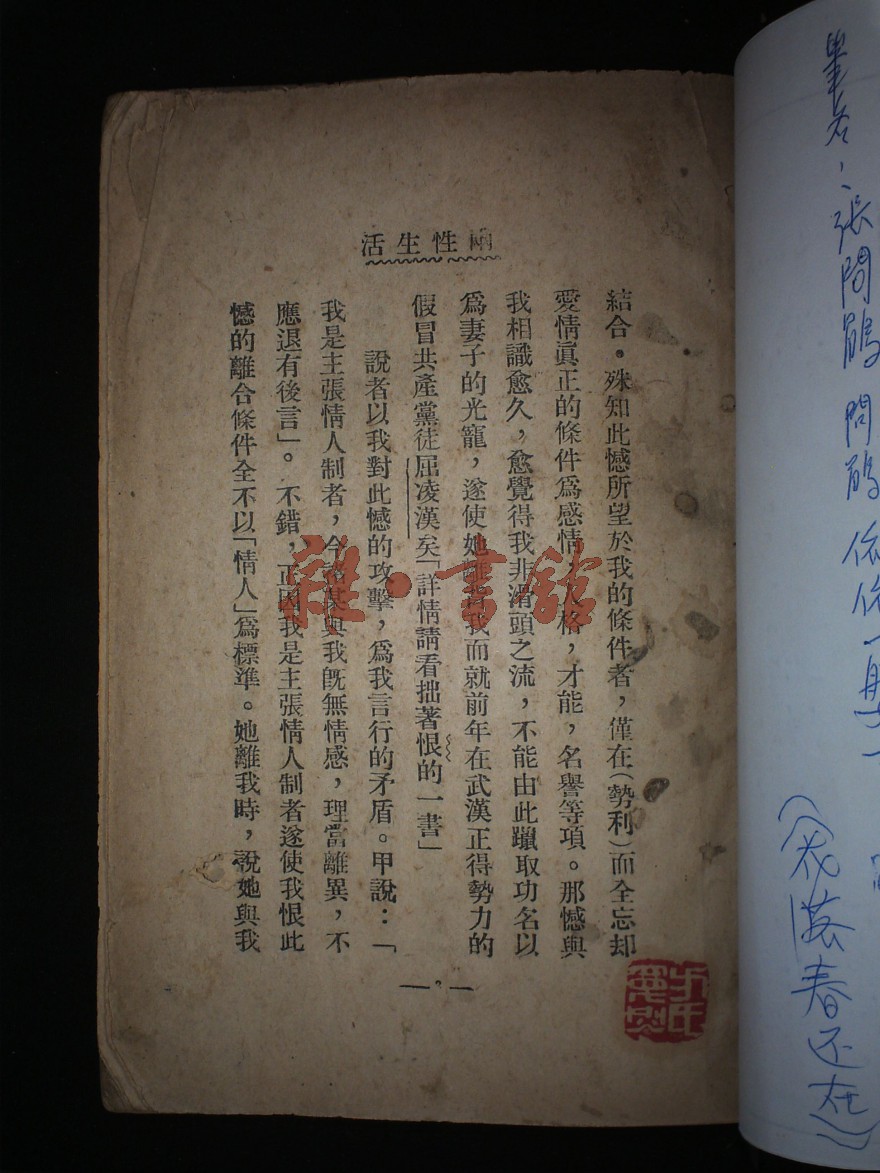 兩性生活
結合。殊知此憾所望於我的條件者，僅在(勢利)而全忘却
愛情眞正的條件爲感情，人格，才能，名譽等項。那憾與
我相識愈久，愈覺得我非滑頭之流，不能由此躐取功名以
爲妻子的光寵，遂使她離背我而就前年在武漢正得勢力的
假冒共產黨徒屈凌漢矣「詳情請看拙著恨的一書」
說者以我對此憾的攻擊，爲我言行的矛盾。甲說：「
我是主張情人制者，今褚某與我旣無情感，理當離異，不
應退有後言」。不錯，正因我是主張情人制者遂使我恨此
憾的離合條件全不以「情人」爲標準。她離我時，說她與我
雜·書館
筆名：張問鵑 問鵑
春还在